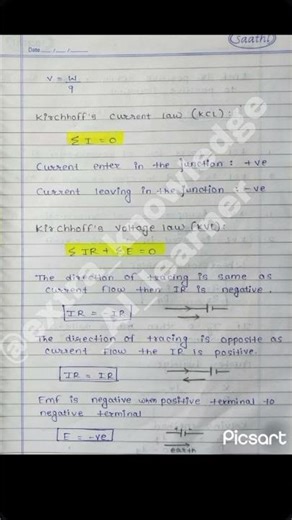 Saathi
Date ___/___/___
V = W/q
Kirchhoff's current law (KCL):
Σ I = 0
Current enter in the junction : +ve
Current leaving in the junction : -ve
Kirchhoff's voltage law (KVL):
Σ IR + Σ E = 0
The direction of tracing is same as
current flow then IR is negative.
IR = - IR
The direction of tracing is opposite as
current flow the IR is positive.
IR = IR
Emf is negative when positive terminal to
negative terminal
E = -ve
Picsart